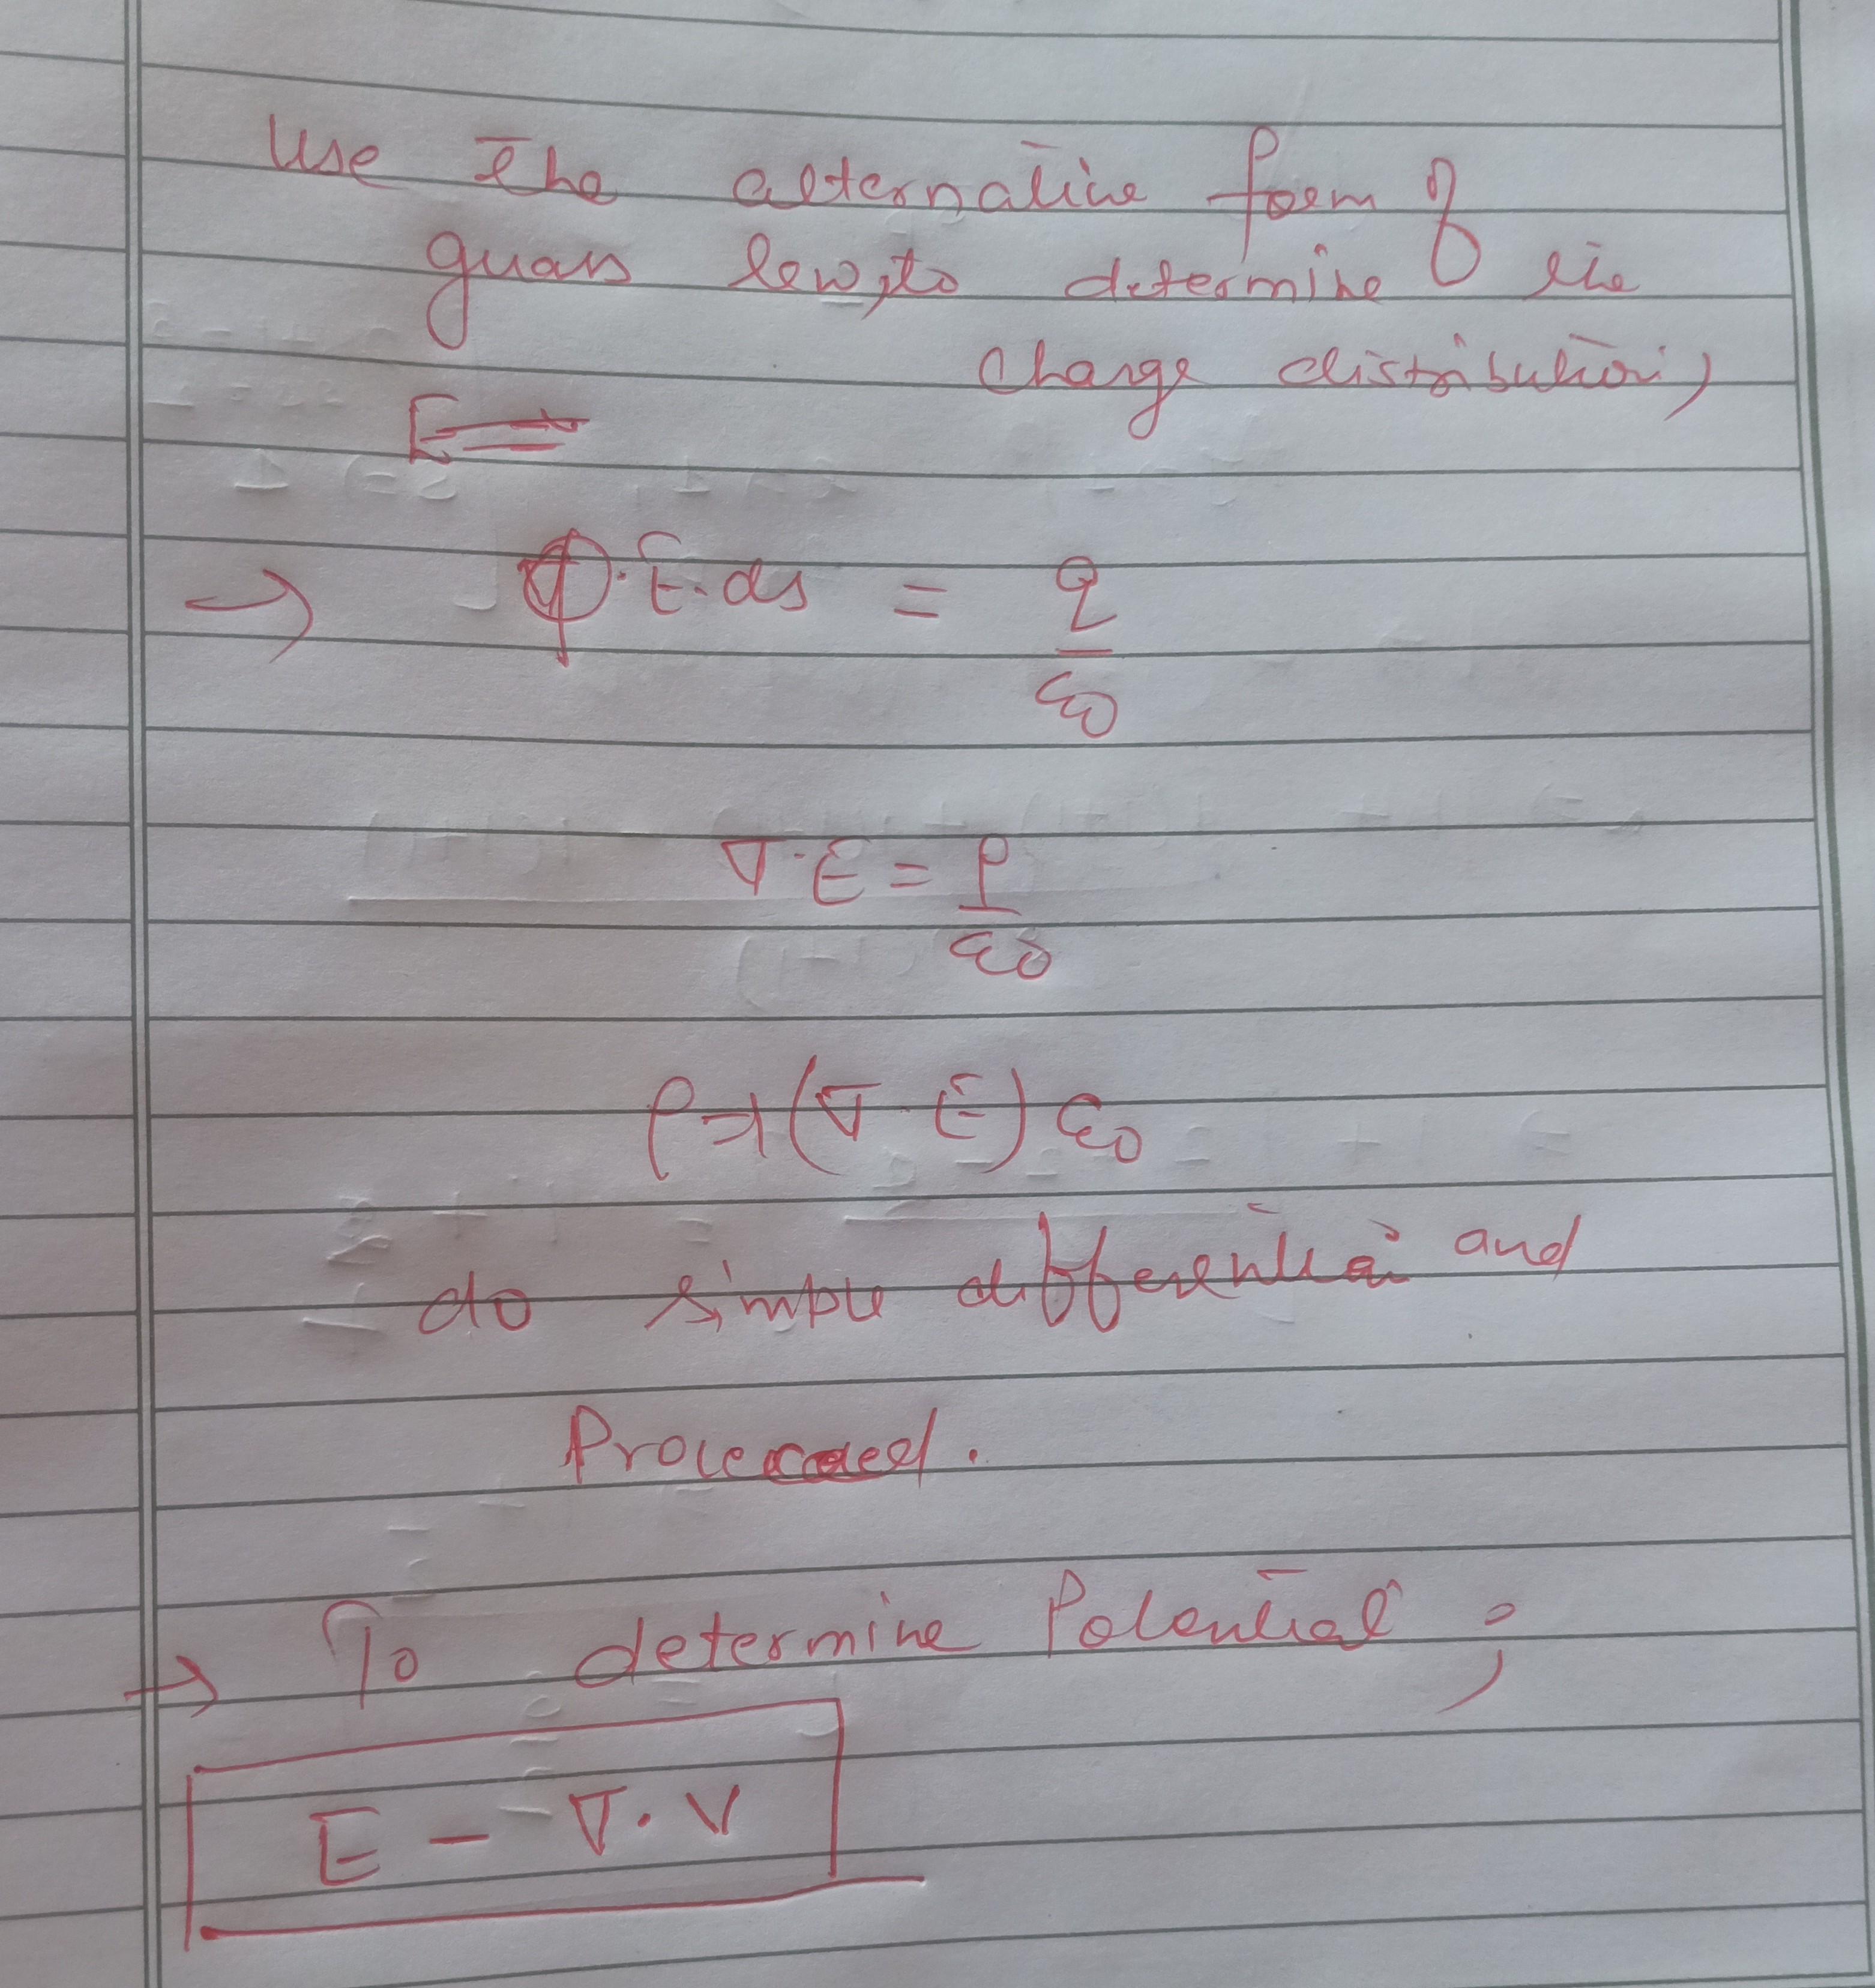 Use the alternative form of
guass law, to determine the
charge distribution,
E =
→ ∮ · E · ds = q / ε0
∇ · E = ρ / ε0
ρ = (∇ · E) ε0
do simple differential and
Proceed.
→ To determine Potential ;
E - ∇ · V